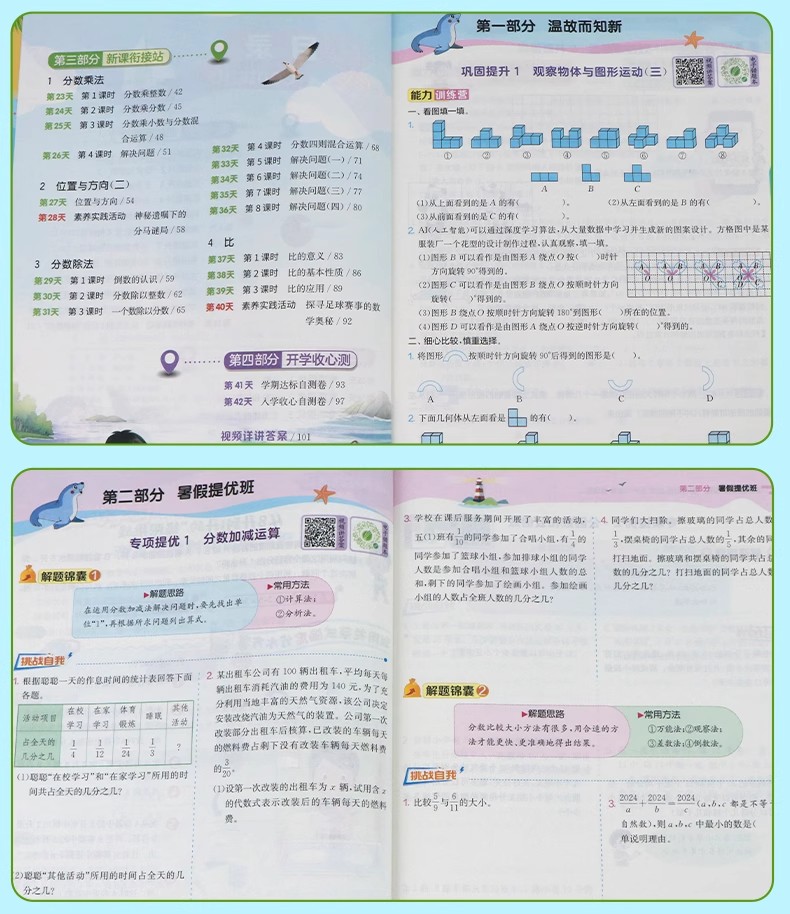 第三部分 新课衔接站
1 分数乘法
第23天 第1课时 分数乘整数/42
第24天 第2课时 分数乘分数/45
第25天 第3课时 分数乘小数与分数混
合运算/48
第26天 第4课时 解决问题/51
2 位置与方向(二)
第27天 位置与方向/54
第28天 素养实践活动 神秘遗嘱下的
分马谜局/58
3 分数除法
第29天 第1课时 倒数的认识/59
第30天 第2课时 分数除以整数/62
第31天 第3课时 一个数除以分数/65
第32天 第4课时 分数四则混合运算/68
第33天 第5课时 解决问题(一)/71
第34天 第6课时 解决问题(二)/74
第35天 第7课时 解决问题(三)/77
第36天 第8课时 解决问题(四)/80
4 比
第37天 第1课时 比的意义/83
第38天 第2课时 比的基本性质/86
第39天 第3课时 比的应用/89
第40天 素养实践活动 探寻足球赛事的数
学奥秘/92
第四部分 开学收心测
第41天 学期达标自测卷/93
第42天 入学收心自测卷/97
视频详讲答案/101
第一部分 温故而知新
巩固提升1 观察物体与图形运动(三)
能力训练营
一、看图填一填。
1.
① ② ③ ④ ⑤ ⑥ ⑦ ⑧
A B C
(1)从上面看到的是A的有( )。 (2)从左面看到的是B的有( )。
(3)从前面看到的是C的有( )。
2. AI(人工智能)可以通过深度学习算法,从大量数据中学习并生成新的图案设计。方格图中是某
服装厂一个花型的设计制作过程,认真观察,填一填。
(1)图形B可以看作是由图形A绕点O按( )时针
方向旋转90°得到的。
(2)图形C可以看作是由图形B绕点O按顺时针方向
旋转( )°得到的。
(3)图形B绕点O按顺时针方向旋转180°到图形( )所在的位置。
(4)图形D可以看作是由图形A绕点O按逆时针方向旋转( )°得到的。
二、细心比较,慎重选择。
1. 将图形 按顺时针方向旋转90°后得到的图形是( )。
A B C D
2. 下面几何体从左面看是 的有( )。
第二部分 暑假提优班
专项提优1 分数加减运算
解题锦囊1
▶解题思路
在运用分数加减法解决问题时,要先找出单
位“1”,再根据所求问题列出算式。
▶常用方法
①计算法;
②分析法。
挑战自我
1. 根据聪聪一天的作息时间的统计表回答下面
各题。
活动项目 在校学习 在家学习 体育锻炼 睡眠 其他活动
占全天的几分之几 1/4 1/12 1/24 1/3 ?
(1)聪聪“在校学习”和“在家学习”所用的时
间共占全天的几分之几?
2)聪聪“其他活动”所用的时间占全天的几
分之几?
2. 某出租车公司有100辆出租车,平均每天每
辆出租车消耗汽油的费用为140元,为了充
分利用当地丰富的天然气资源,该公司决定
安装改烧汽油为天然气的装置。公司第一次
改装部分出租车后核算,已改装的车辆每天
的燃料费占剩下没有改装车辆每天燃料费
的3/20。
(1)设第一次改装的出租车为x辆,试用含x
的代数式表示改装后的车辆每天的燃料
费。
第二部分 暑假提优班
3. 学校在课后服务期间开展了丰富的活动,
五(1)班有1/10的同学参加了合唱小组,有1/4的
同学参加了篮球小组,参加排球小组的同学
人数是参加合唱小组和篮球小组人数的总
和,剩下的同学参加了绘画小组。参加绘画
小组的人数占全班人数的几分之几?
4. 同学们大扫除。擦玻璃的同学占总人数
1/3,摆桌椅的同学占总人数的1/5,其余的同
打扫地面。擦玻璃和摆桌椅的同学共占总
数的几分之几?打扫地面的同学占总人数
几分之几?
解题锦囊2
▶解题思路
分数比较大小方法有很多,用合适的方
法才能更快、更准确地得出结果。
▶常用方法
①万能法;②观察法;
③差数法;④倒数法。
挑战自我
1. 比较5/9与6/11的大小。
3. 2024/a+2024/b=2024/c(a,b,c都是不等
自然数),则a,b,c中最小的数是(
单说明理由。